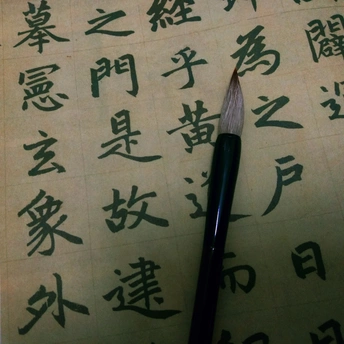 闢日
為之戶
經乎黃道而
之門是故建
摹憲玄象外